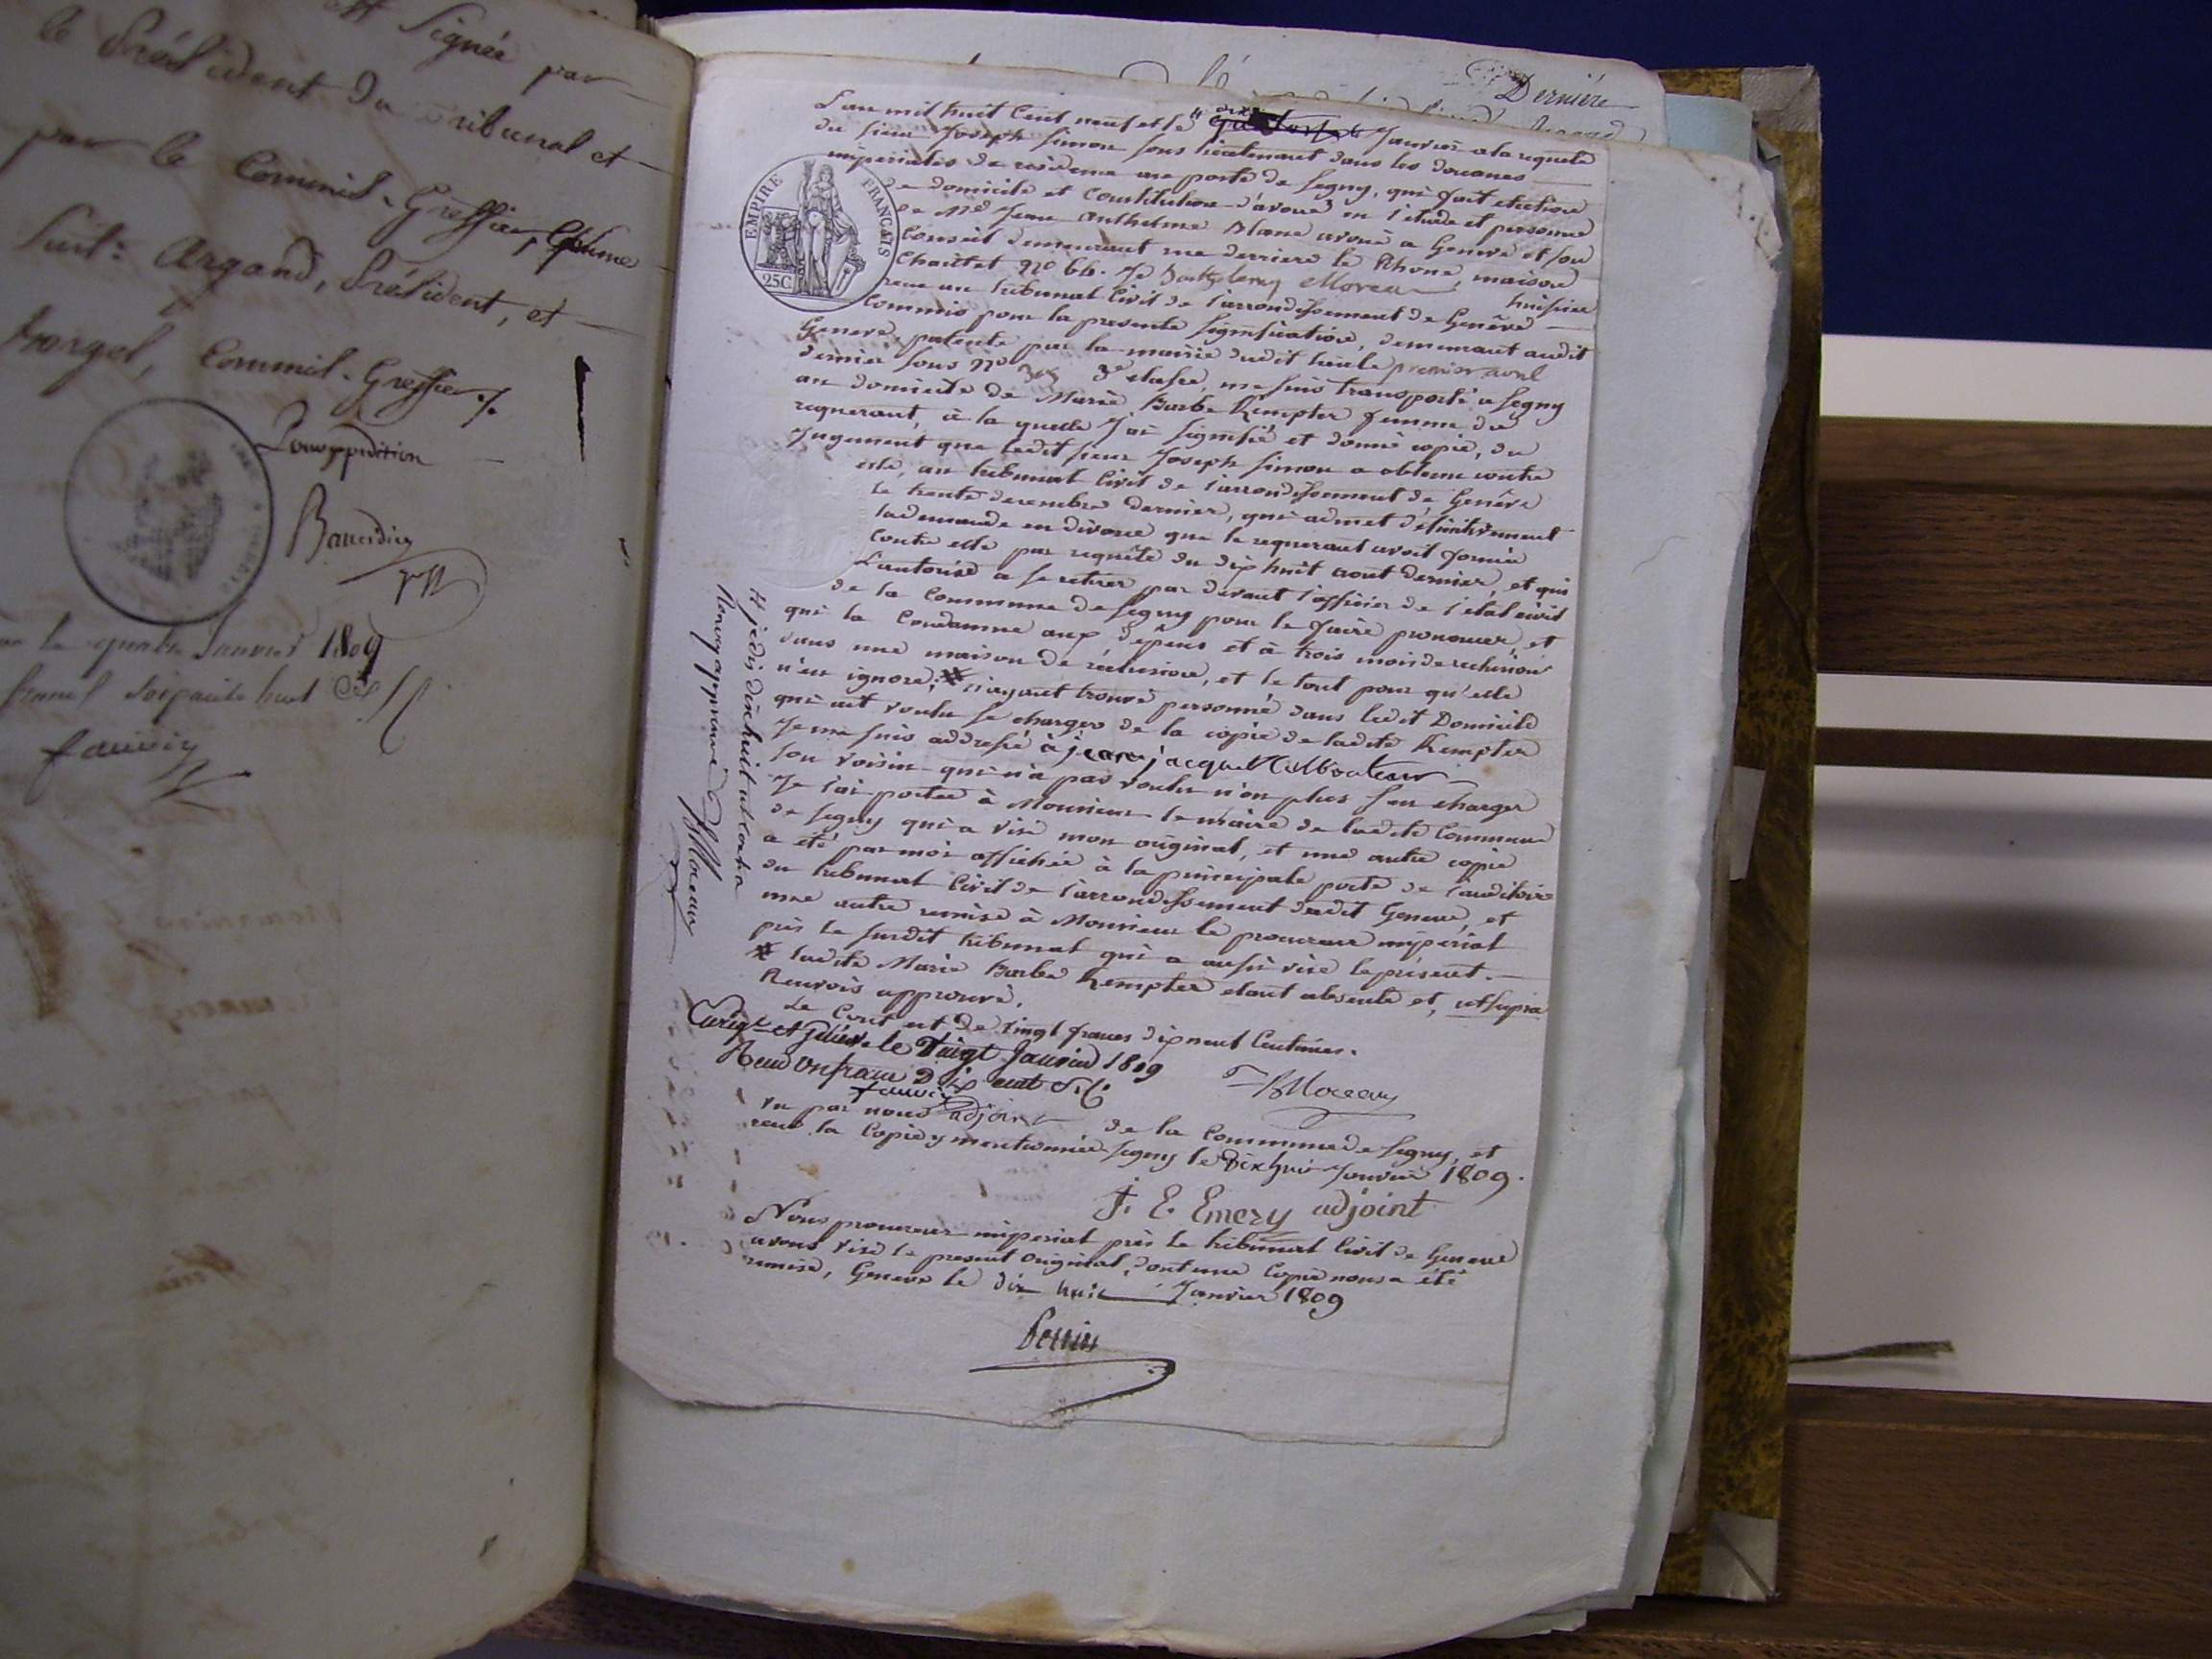 est Signée par
le Président du Tribunal et
par le Commis-Greffier, Comme
Suit: Argand, Président, et
Commis-Greffier ./.
Pour expédition
le quatre Janvier 1809
soixante huit
Dernière
L'an mil huit Cent neuf et le dix Janvier a la requete
du sieur Joseph Simon sous lieutenant dans les douanes
imperiales de residence au poste de Segny, qui fait election
de domicile et Constitution d'avoué en l'etude et personne
de Me Jean Anthelme Blanc avoué a Geneve et son
Conseil demeurant rue derriere le Rhone, maison
No 66. Je Barthelemy Moreau huissier
recu au tribunal Civil de l'arrondissement de Genêve
Commis pour la presente signification, demeurant audit
Genevè, patenté par la mairie dudit lieu le premier avril
dernier sous No 3e classe, me suis transporté a Segny
au domicile de Marie Barbe Kempter femme du
requerant, à la quelle J'ai signifié et donné copie, du
Jugement que ledit sieur Joseph Simon a obtenu contre
elle, au tribunal Civil de l'arrondissement de Genêve
le trente decembre dernier, qui admet définitivement
la demande en divorce que le requerant avoit formée
Contre elle par requête du dix huit aout dernier, et qui
L'autorise a se retirer par devant l'officier de l'etat civil
de la Commune de Segny pour le faire prononcer, et
qui la Condamne aux dépens et à trois mois de reclusion
dans une maison de réclusion, et le tout pour qu'elle
n'en ignore; # n'ayant trouvé personne dans ledit Domicile
qui ait voulu se charger de la copie de ladite Kempter
Je me suis addressé à jean jacques
son voisin qui n'a pas voulu n'on plus s'en charger
Je l'ai portée à Monsieur le maire de ladite Commune
de Segny qui a visé mon original, et une autre copie
a été par moi affichée à la principale porte de l'auditoire
du tribunal Civil de l'arrondissement dudit Geneve, et
une autre remise à Monsieur le procureur impérial
près le susdit tribunal qui a aussi visé le présent.
# ladite Marie Barbe Kempter etant absente et, ut supra
Renvois approuvé.
Le Cout est de vingt francs dix neuf Centimes.
Enrigé à Genève le Vingt Janvier 1809
Recu un franc Dix
BMoreau
Vu par nous adjoint de la Commune de Segny, et
recu la Copie y mentionnée Segny le Dix huit Janvier 1809.
J. E. Emery adjoint
Nous procureur imperial près le tribunal Civil de Geneve
avons visé le present original, dont une Copie nous a été
remise, Geneve le dix huit Janvier 1809
Perrin
# je dis dix huit
Renvoy approuvé BMoreau
EMPIRE FRANÇAIS
25C